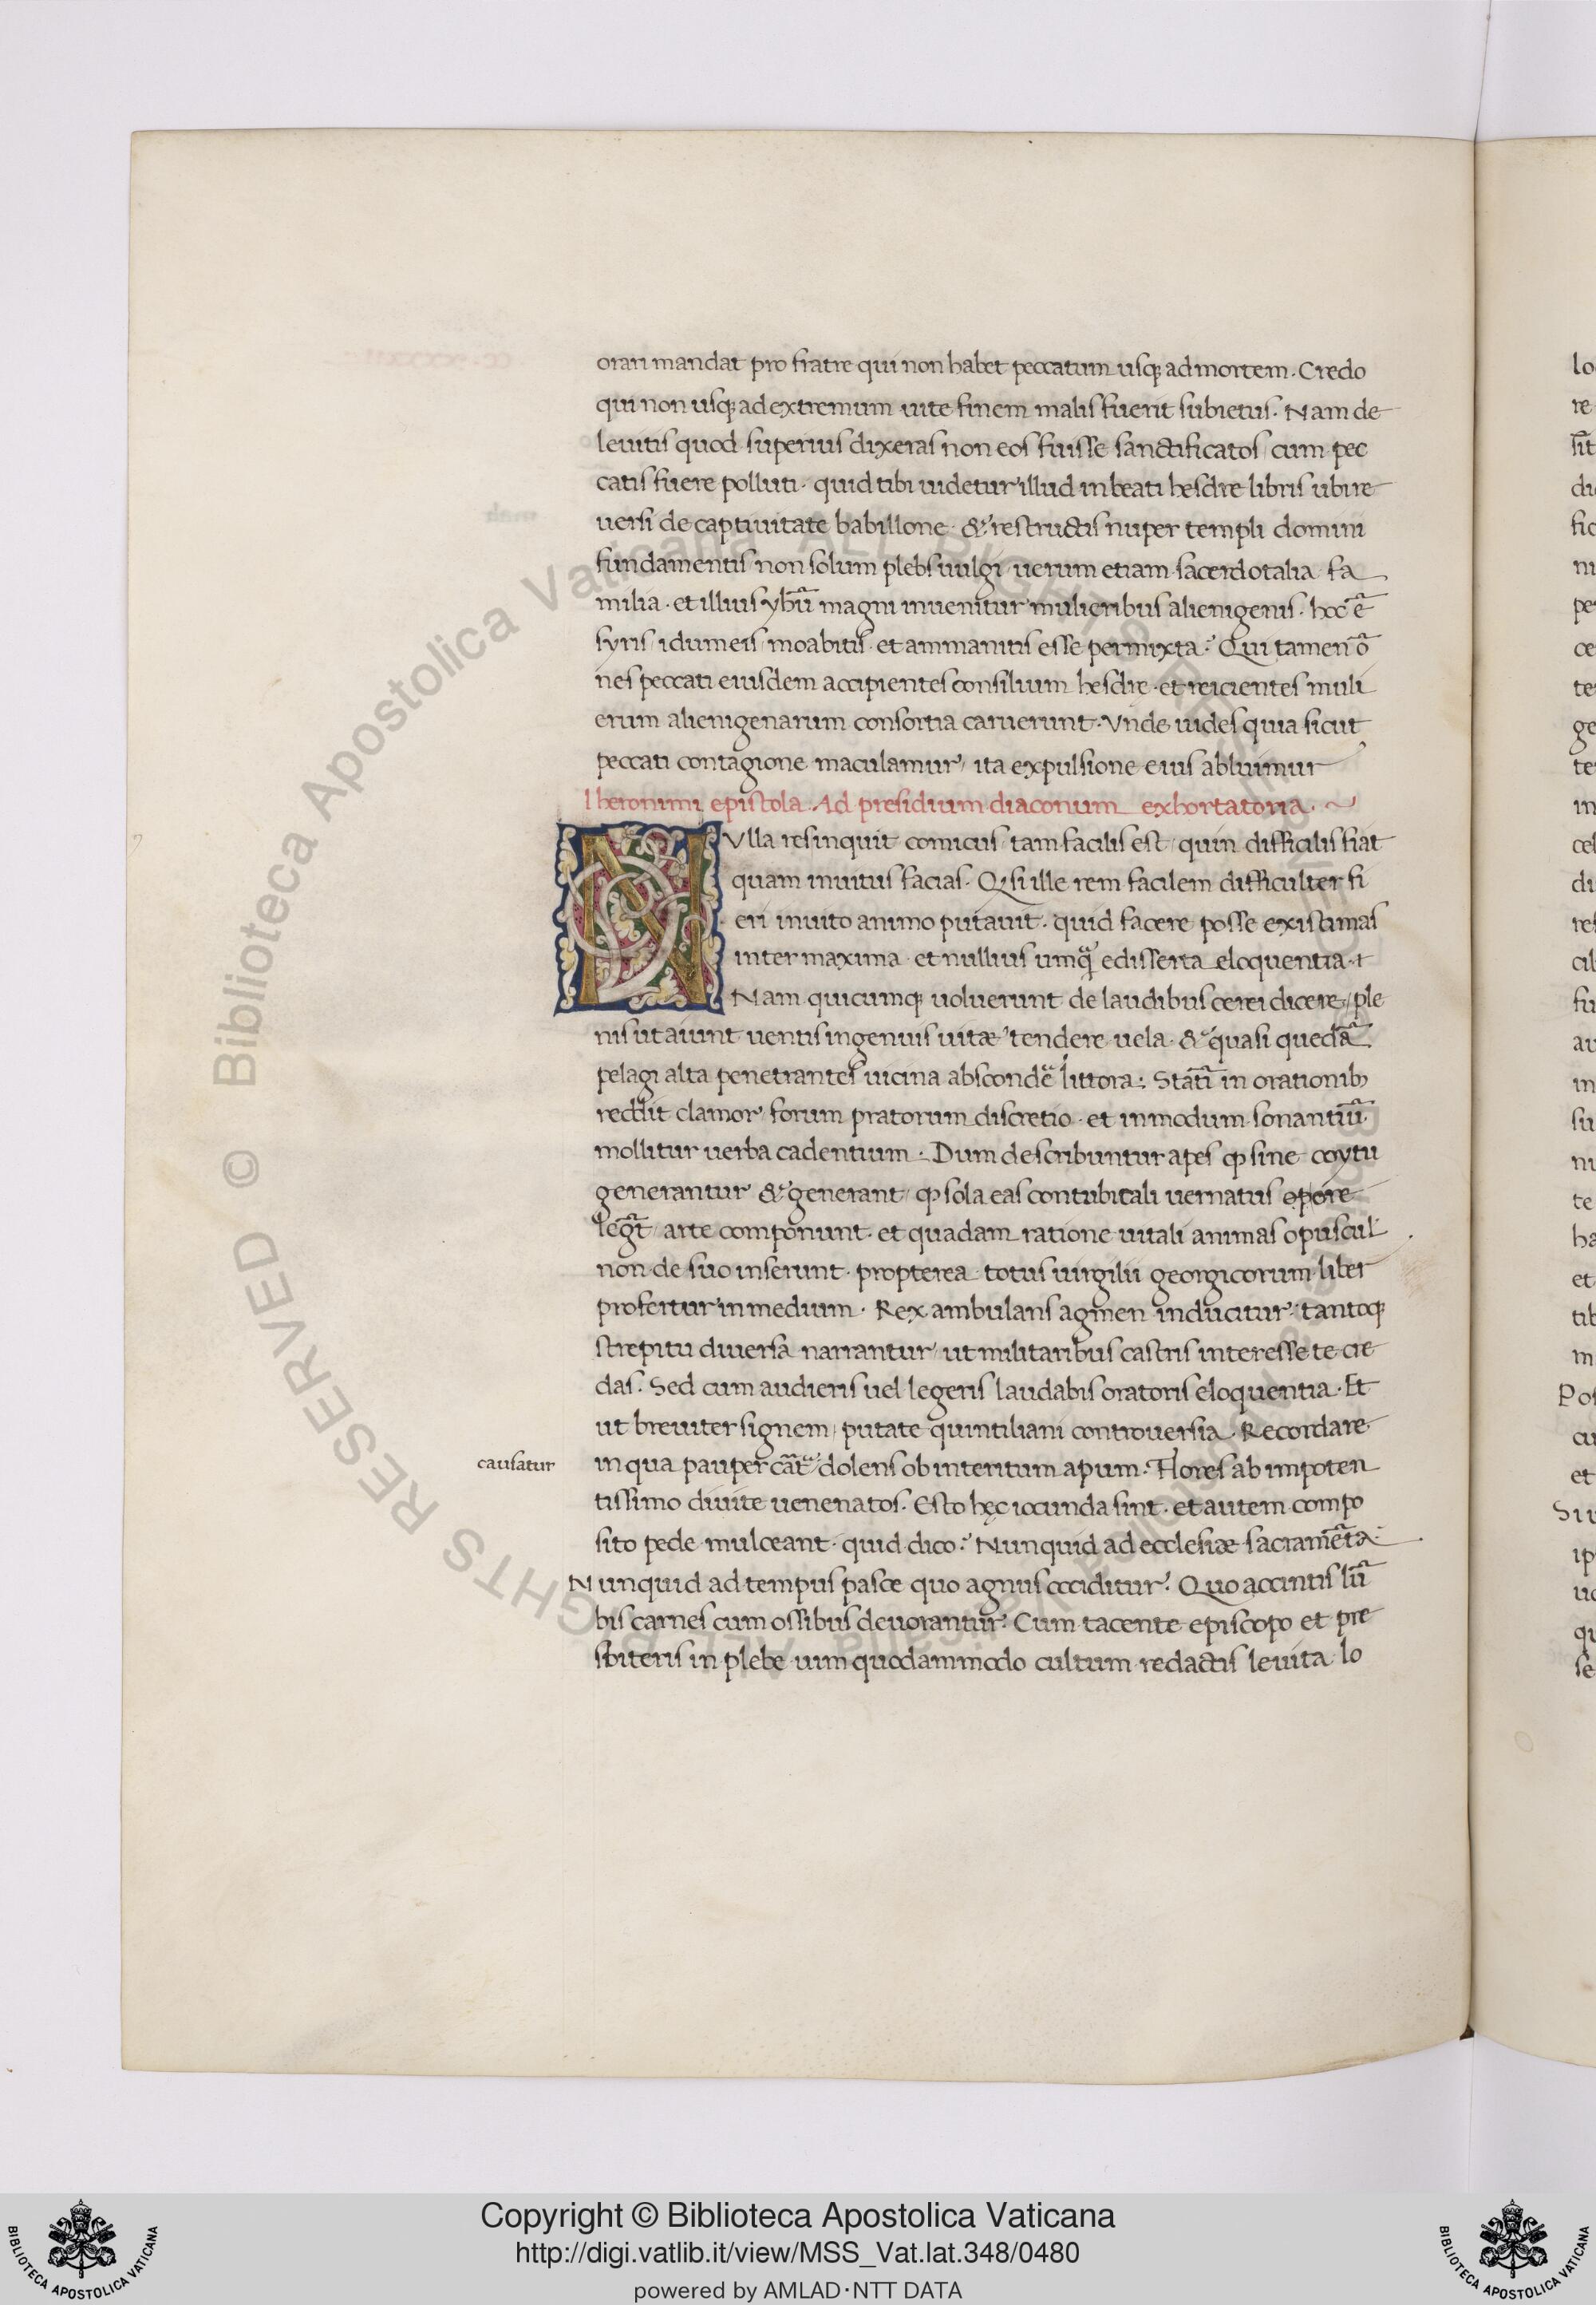 orari mandat pro fratre qui non habet peccatum usq; ad mortem. Credo
qui non usq; ad extremum uite finem malis fuerit subietus. Nam de
leuitis quod superius dixeras non eos fuisse sanctificatos / cum pec
catis fuere polluti. quid tibi uidetur illud in beati hesdre libris ubi re
uersi de captiuitate babillone. & restructis nuper templi domini
fundamentis non solum plebs uulgi / uerum etiam sacerdotalia fa
milia. et illius ybū magni inuenitur mulieribus alienigenis. hoc ē
syris / idumeis / moabitis. et ammanitis esse permixta? Qui tamen ō
nes peccati eiusdem accipientes consilium hesdre. et reicientes muli
erum alienigenarum consortia caruerunt. Vnde uides quia sicut
peccati contagione maculamur / ita expulsione eius abluimur
Iheronimi epistola. Ad presidium diaconum exhortatoria.
NVlla res inquit comicus / tam facilis est / quin difficilis fiat
quam inuitus facias. Q, si ille rem facilem difficulter fi
eri inuito animo putauit. quid facere posse existimas
inter maxima. et nullius umq̄ edisserta eloquentia.
Nam quicumq; uoluerunt de laudibus cerei dicere / ple
nis ut aiunt uentis ingenuis uitæ tendere uela. & quasi quedā
pelagi alta penetrantes uicina abscondē littora: Statī in orationib;
reddit clamor / forum pratorum discretio. et in modum sonantiū.
mollitur uerba cadentium. Dum describuntur apes ꝙ sine coytu
generantur & generant / ꝙ sola eas contubitali uernatus opere
legt̄ / arte componunt. et quadam ratione uitali animas opuscul
non de suo inserunt. propterea totus uirgilii georgicorum liber
profertur in medium. Rex ambulans agmen inducitur. tantoq;
strepitu diuersa narrantur / ut militaribus castris interesse te cre
das. Sed cum audieris uel legeris laudabis oratoris eloquentia. Et
ut breuiter signem / putate quintiliani controuersia. Recordare
causatur
in qua pauper cāt dolens ob interitum apum. Flores ab impoten
tissimo diuite uenenatos. Esto hęc iocunda sint. et autem compo
sito pede mulceant. quid dico? Nunquid ad ecclesiæ sacramēta.
Nunquid ad tempus pasce quo agnus occiditur? Quo accintis lū
bis carnes cum ossibus deuorantur? Cum tacente episcopo et pre
sbiteris in plebe uim quodammodo cultum redactis leuita lo
lo
re
Copyright © Biblioteca Apostolica Vaticana
http://digi.vatlib.it/view/MSS_Vat.lat.348/0480
powered by AMLAD·NTT DATA
BIBLIOTECA APOSTOLICA VATICANA
BIBLIOTECA APOSTOLICA VATICANA
© Biblioteca Apostolica Vaticana ALL RIGHTS RESERVED